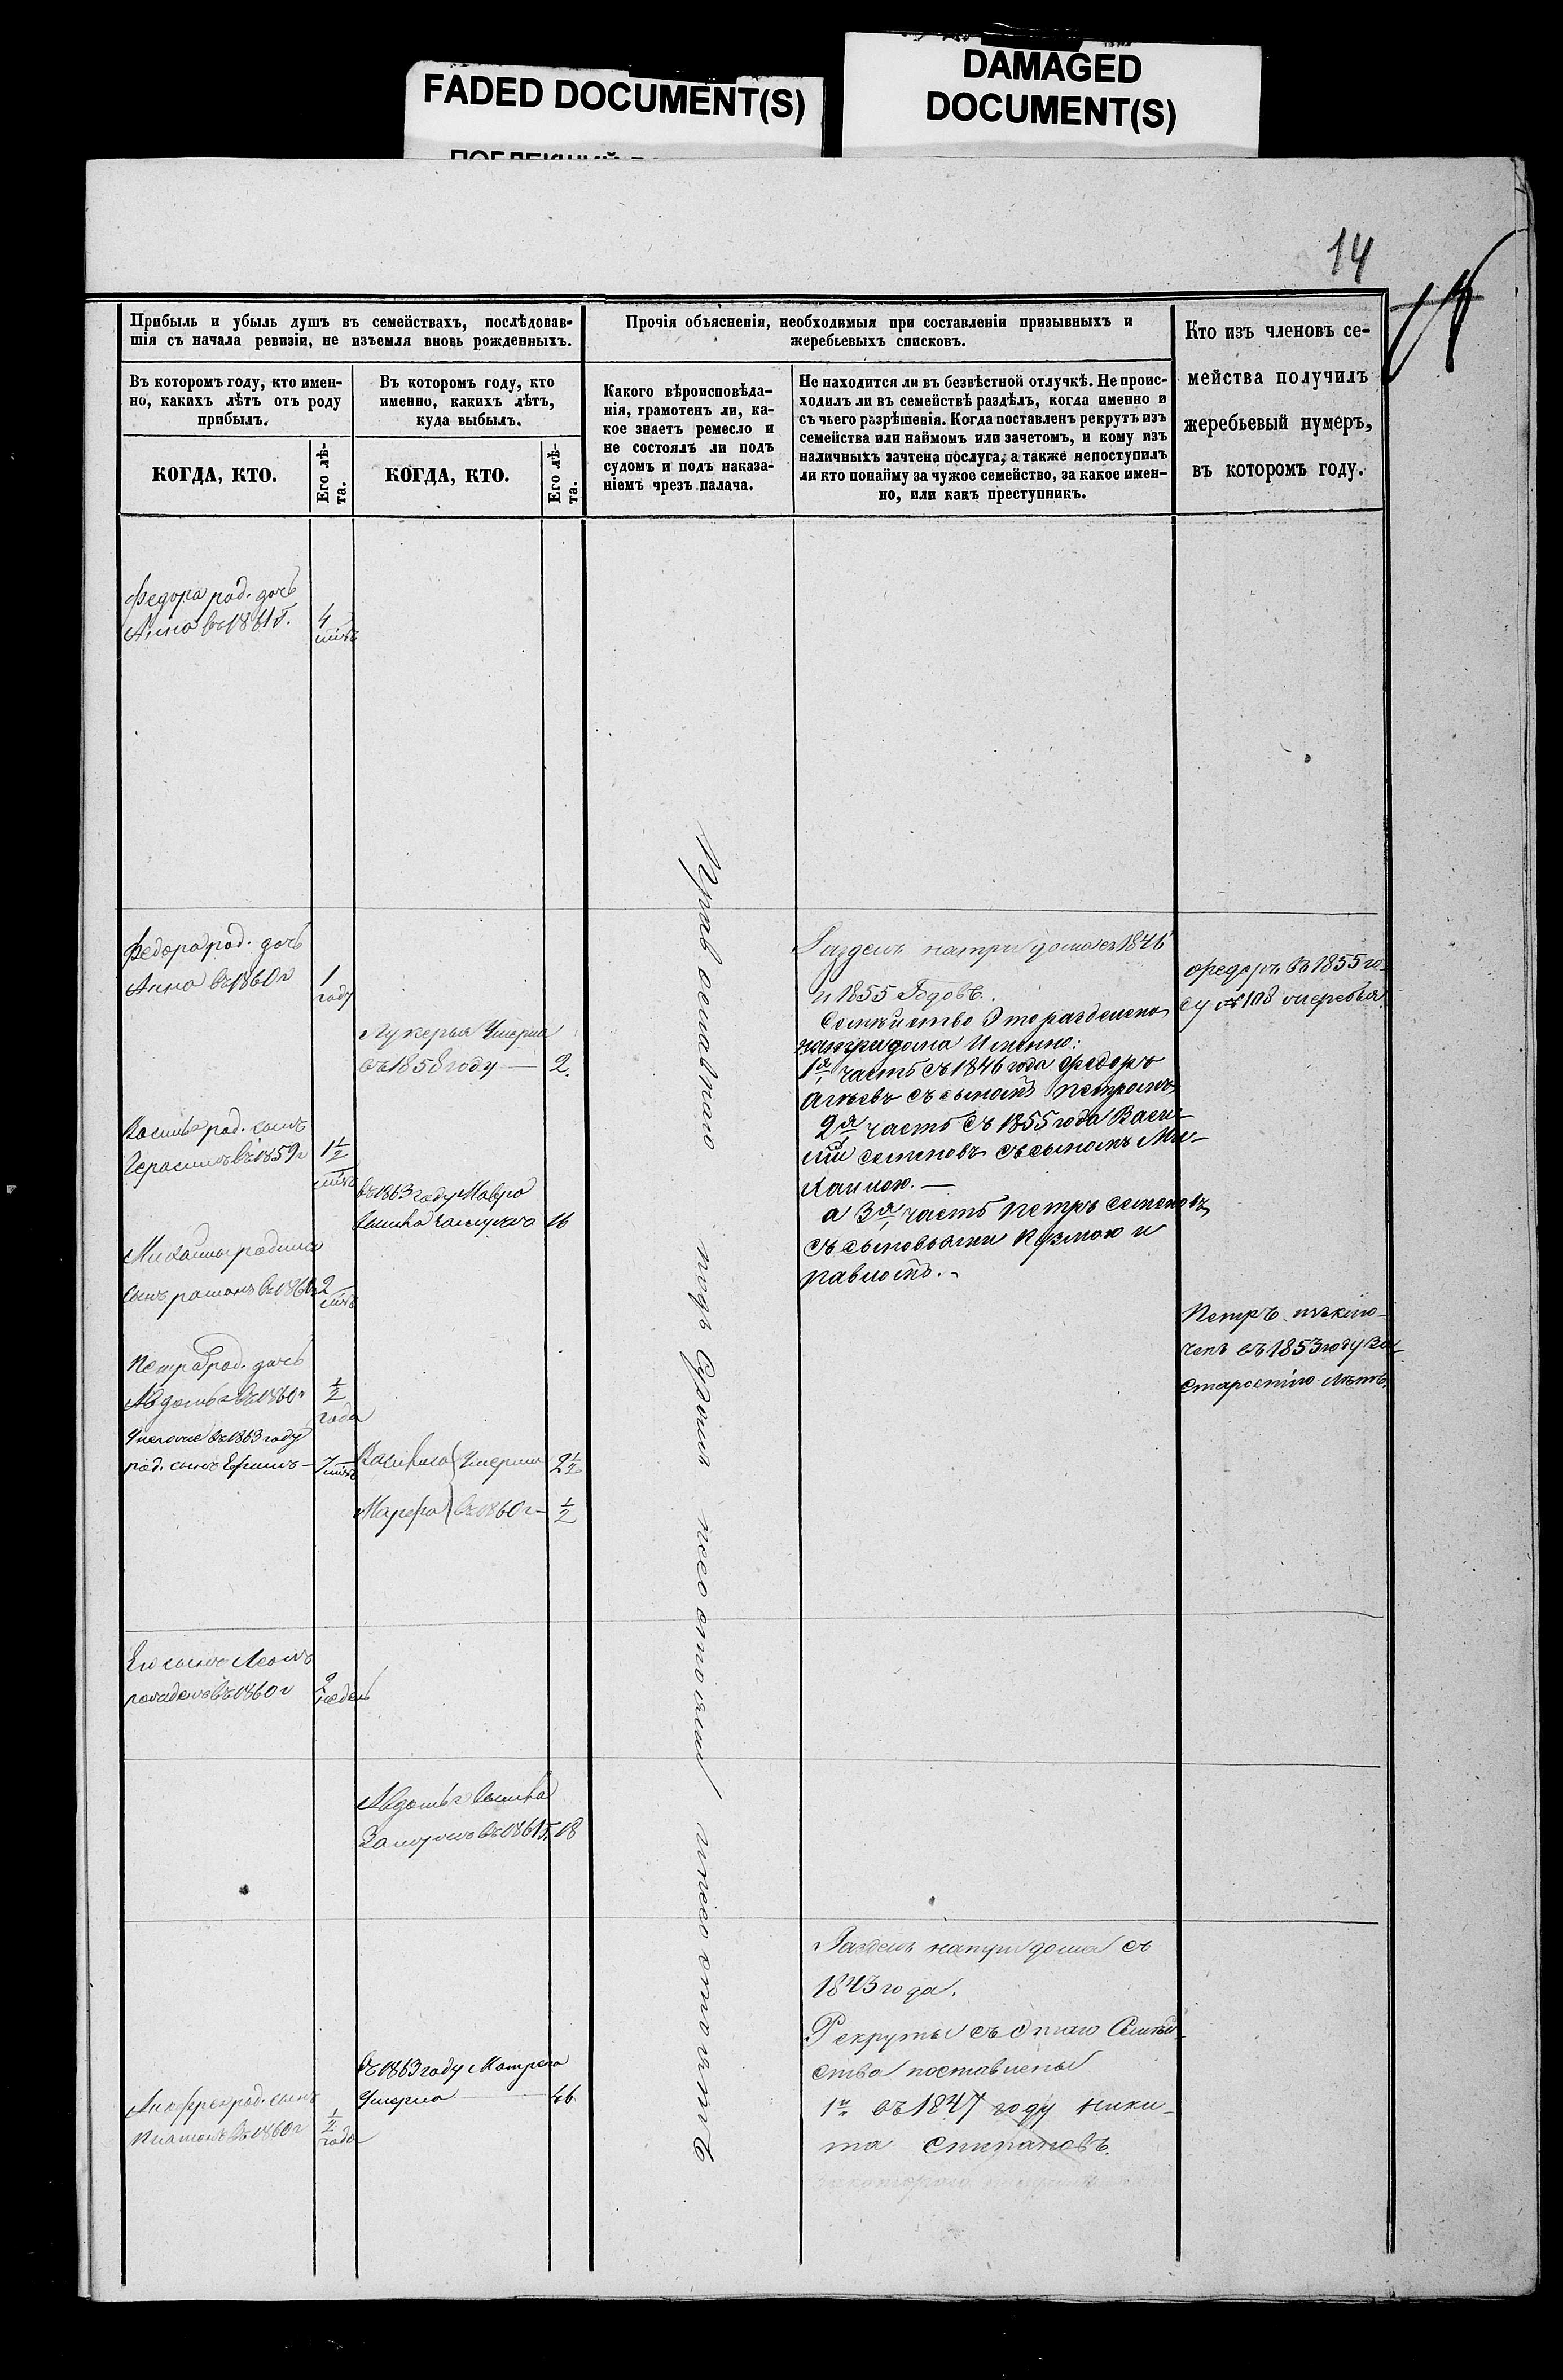 FADED DOCUMENT(S)
DAMAGED
DOCUMENT(S)
14
Прибыль и убыль душъ въ семействахъ, послѣдовав-
шія съ начала ревизіи, не изъемля вновь рожденныхъ.
Прочія объясненія, необходимыя при составленіи призывныхъ и
жеребьевыхъ списковъ.
Кто изъ членовъ се-
мейства получилъ
жеребьевый нумеръ,
въ которомъ году.
Въ которомъ году, кто имен-
но, какихъ лѣтъ отъ роду
прибылъ.
Въ которомъ году, кто
именно, какихъ лѣтъ,
куда выбылъ.
Какого вѣроисповѣда-
нія, грамотенъ ли, ка-
кое знаетъ ремесло и
не состоялъ ли подъ
судомъ и подъ наказа-
ніемъ чрезъ палача.
Не находится ли въ безвѣстной отлучкѣ. Не проис-
ходилъ ли въ семействѣ раздѣлъ, когда именно и
съ чьего разрѣшенія. Когда поставленъ рекрутъ изъ
семейства или наймомъ или зачетомъ, и кому изъ
наличныхъ зачтена послуга, а также непоступилъ
ли кто понайму за чужое семейство, за какое имен-
но, или какъ преступникъ.
КОГДА, КТО.
Его лѣ-
та.
КОГДА, КТО.
Его лѣ-
та.
Федора род. дочь
Анна въ 1861 г.
4
Федора род. дочь
Анна въ 1860 г
1
году
Лукерья Умерла
въ 1858 году — 2.
Василья род. сынъ
Герасимъ въ 1859 г
1½
въ 1863 году Мавра
вышла замужъ 16
Михайлы родился
сынъ въ 1860 2
Петра род. дочь
Авдотья въ 1860 г
½
года
въ 1863 году
род. сынъ Ефимъ — 7
Умерли 2½
Марфа въ 1860 г — ½
православнаго подъ Судомъ несостояли
Раздѣлъ на три дома съ 1846
и 1855 Годовъ.
Семейство Это разделено
на три дома Именно:
1я часть съ 1846 года Федоръ
съ сыномъ Петромъ
2я часть съ 1855 года Васи-
лій Семеновъ съ сыномъ Ми-
хайлою. —
а 3я часть Петръ Семеновъ
съ сыновьями Кузмою и
Павломъ. -
Федоръ въ 1855 го-
ду № 108
Петръ
въ 1853 году за
старостію лѣтъ.
Его сынъ
рожденъ въ 1860 г
недель
Авдотья вышла
Замужъ въ 1861 г. 18
Раздѣлъ на три дома съ
1843 года.
Рекруты съ этаго Семей-
ства поставлены
1й въ 1847 году Ники-
та Степановъ.
въ 1863 году Матрена
Умерла — 46
род. сынъ
Платонъ въ 1860 г
½
года